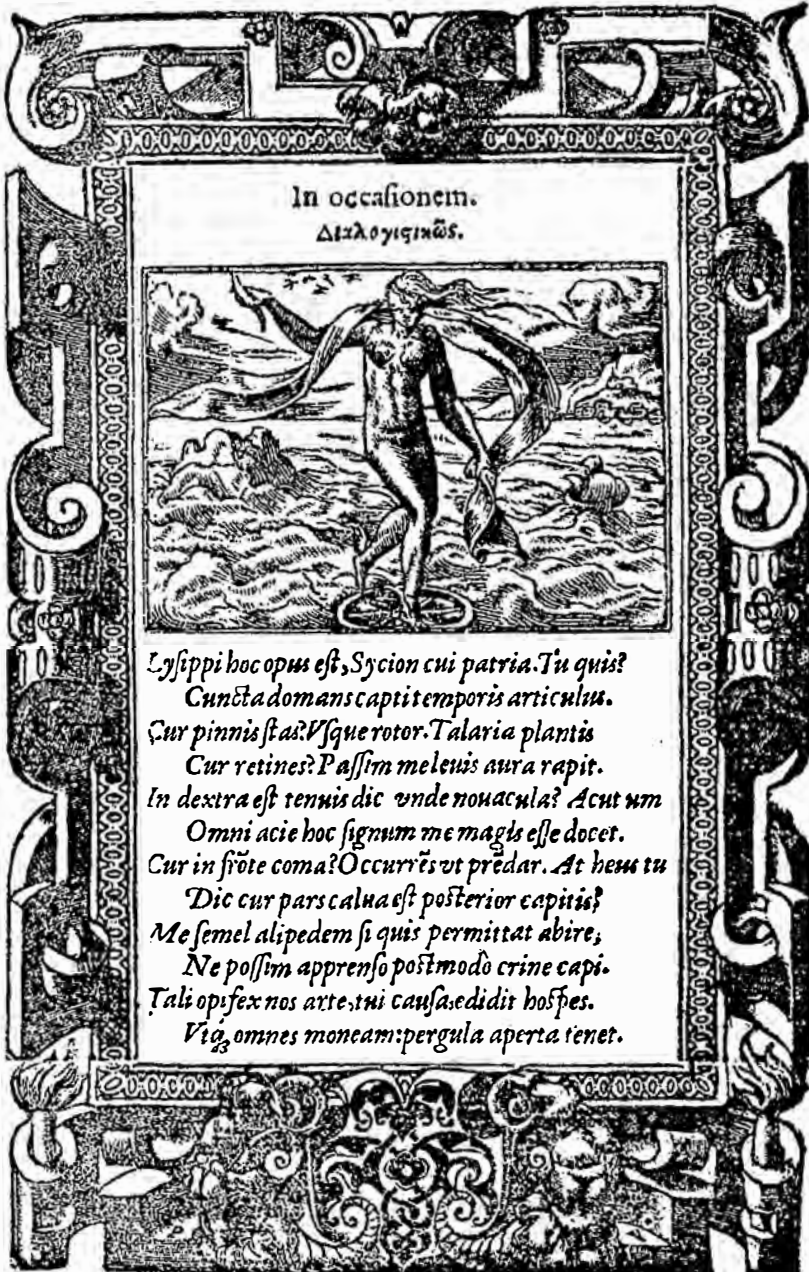 In occaſionem.
Διαλογιϛικῶς.
Lyſippi hoc opus eſt, Sycion cui patria. Tu quis?
Cuncta domans capti temporis articulus.
Cur pinnis ſtas? Vſque rotor. Talaria plantis
Cur retines? Paſſim me leuis aura rapit.
In dextra eſt tenuis dic vnde nouacula? Acutum
Omni acie hoc ſignum me magis eſſe docet.
Cur in frōte coma? Occurrēs vt prēdar. At heus tu
Dic cur pars calua eſt poſterior capitis?
Me ſemel alipedem ſi quis permittat abire,
Ne poſſim apprenſo poſtmodò crine capi.
Tali opifex nos arte, tui cauſa, edidit hoſpes.
Vtq́ꝫ omnes moneam: pergula aperta tenet.